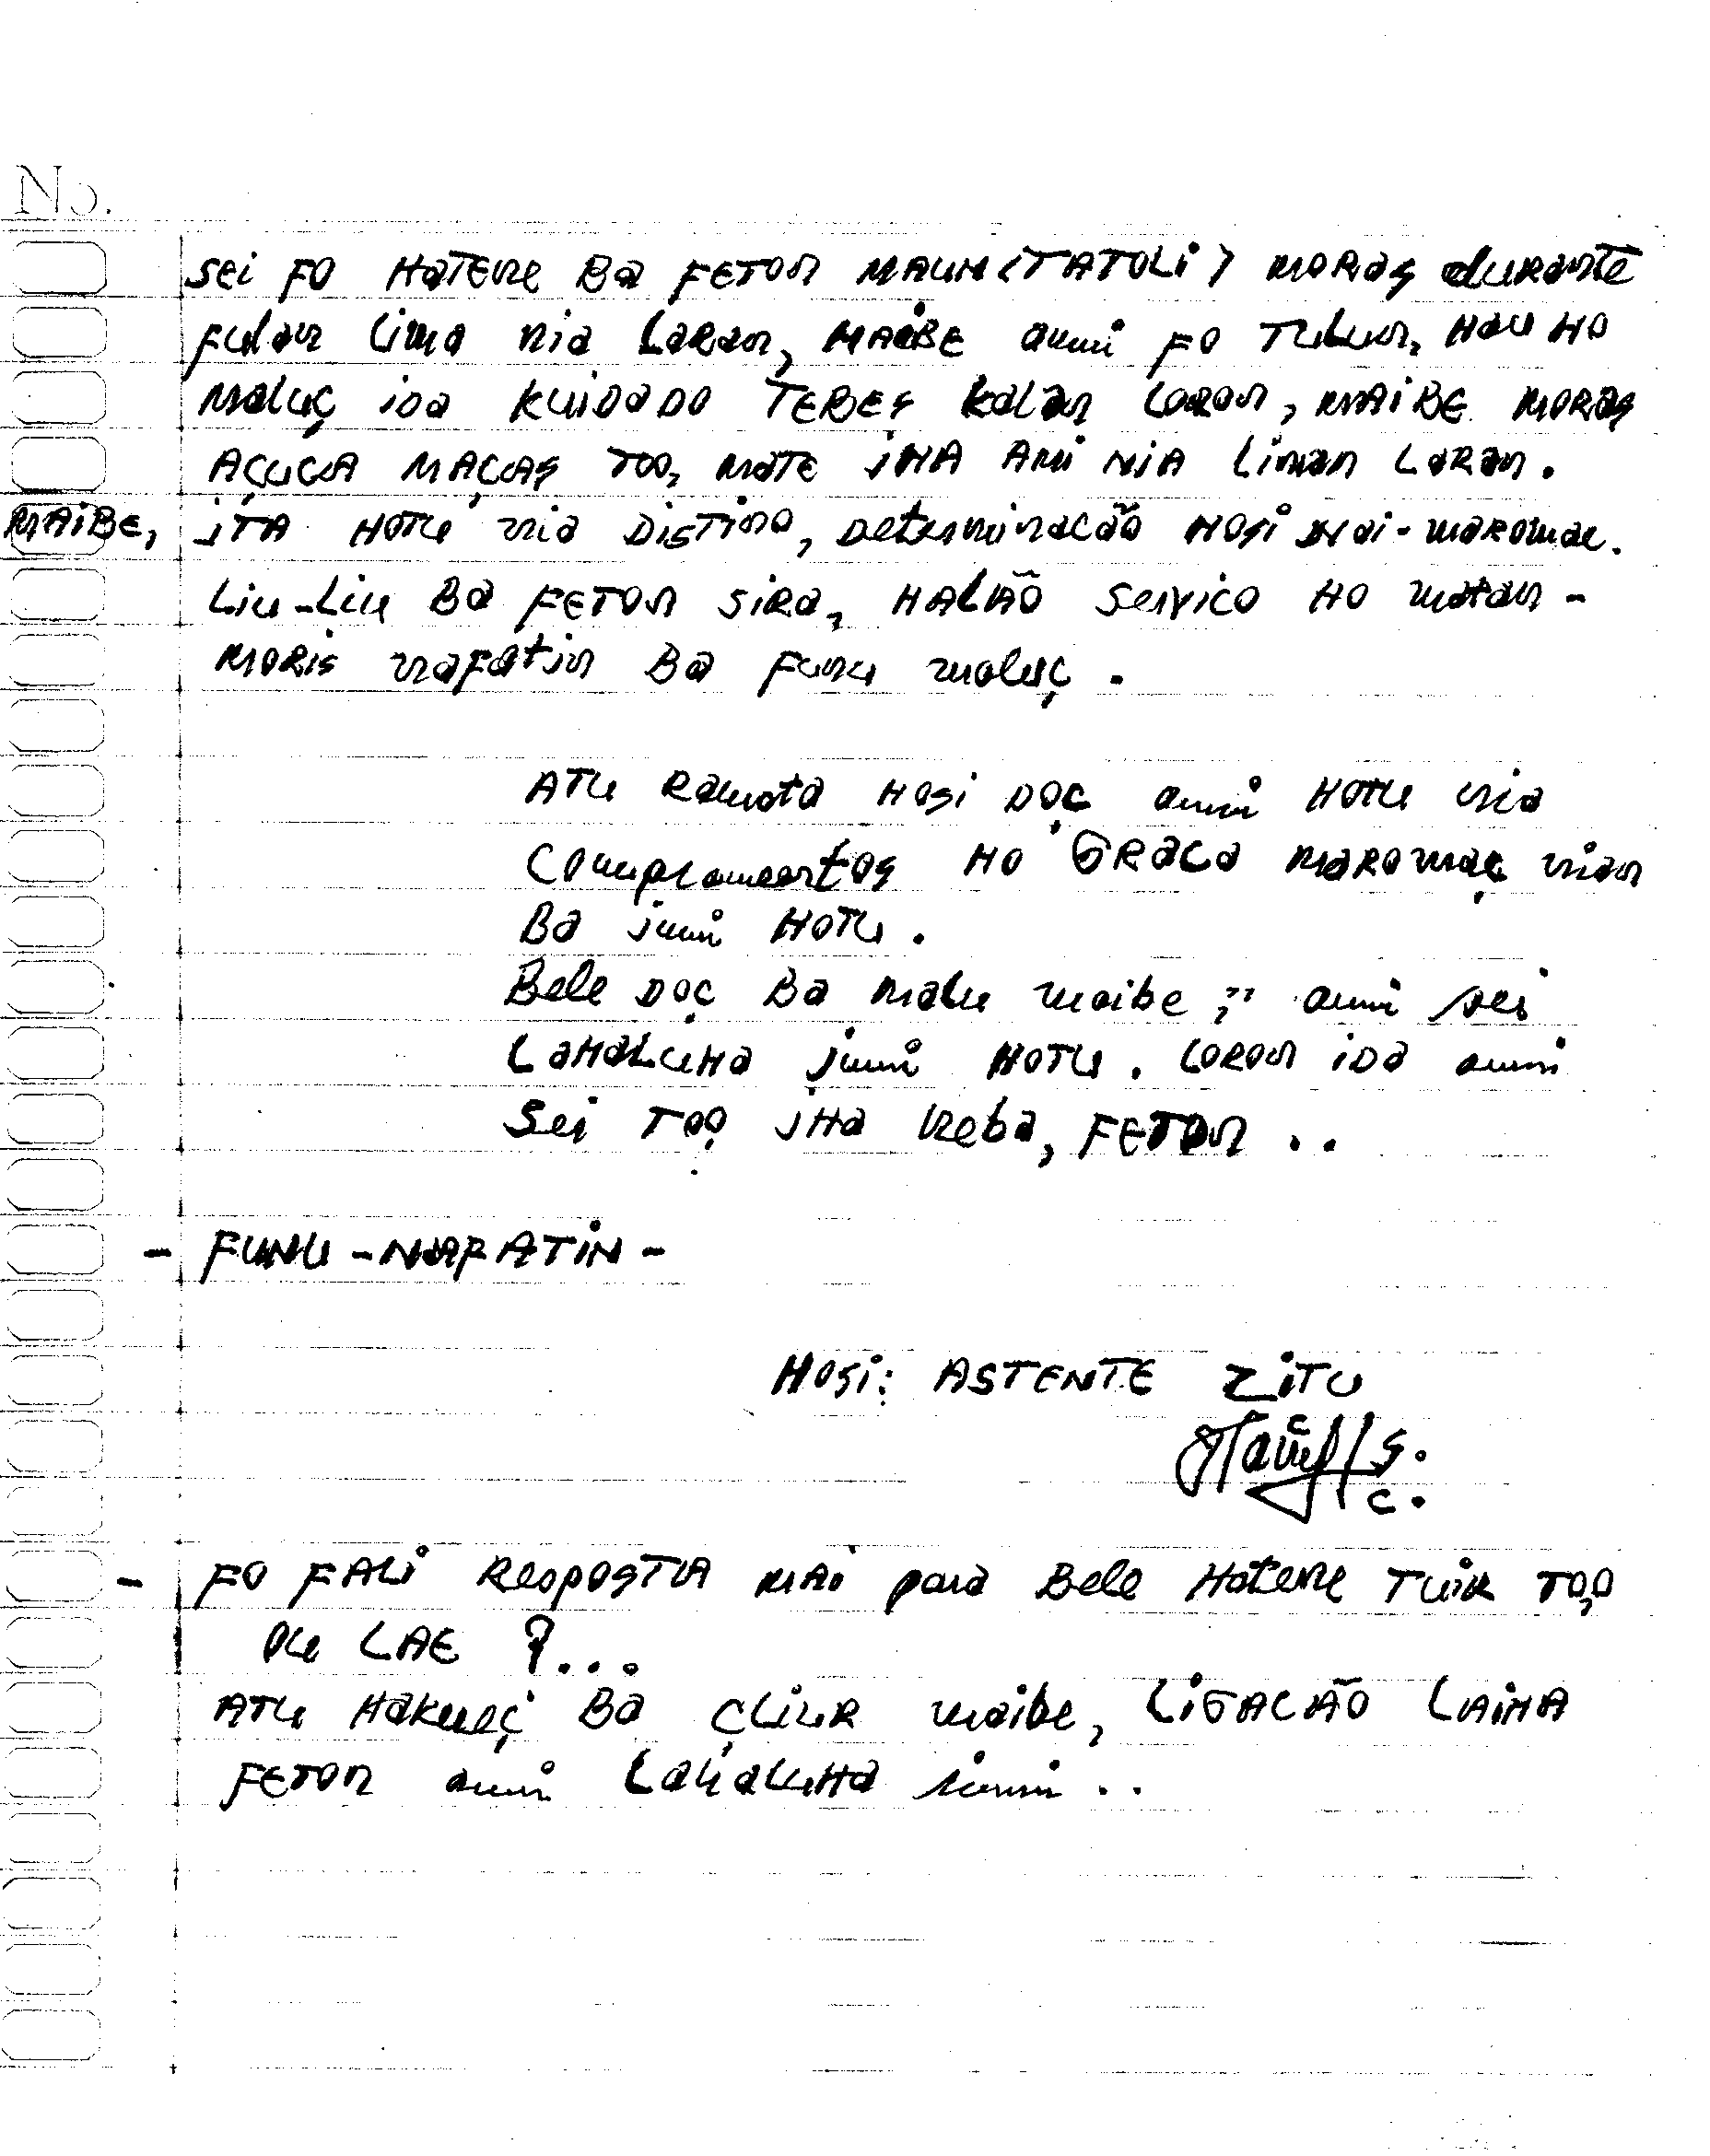 No.
sei FO HATENE Ba FETON MAUN (TATOLI) MORAS durante
fulan lima nia Laran, MAIBE ami FO Tulun, Hau HO
Maluç ida KUIDADO TEBES kalan loron, MAIBE MORAS
AÇUCA MAÇAS TOO, MATE IHA AMI NIA Liman Laran.
MAIBE, ITA HOTU nia Distino, Determinacão Hosi Nai-maromac.
Liu-Liu Ba FETON sira, HALÃO Servico HO matan-
MORIS nafatin Ba Funu maluç.
ATU Ramata Hosi DOÇ ami HOTU nia
Comprementos HO GRACA MAROMAC nian
Ba imi HOTU.
Bele DOÇ Ba Malu maibe," ami sei
LAHALUHA imi HOTU. LORON iDA ami
Sei TOO IHA Neba, FETON ..
- FUNU - NAFATIN -
HOSI: ASTENTE ZITU
S.
C.
- FO FALI RespOSTA MAI para Bele Hatene TUIR TOO
Ou LAE ?...
ATU Hakuiç Ba ÇLIUR maibe, LIGACÃO LAIHA
FETON ami LAHALUHA imi ..